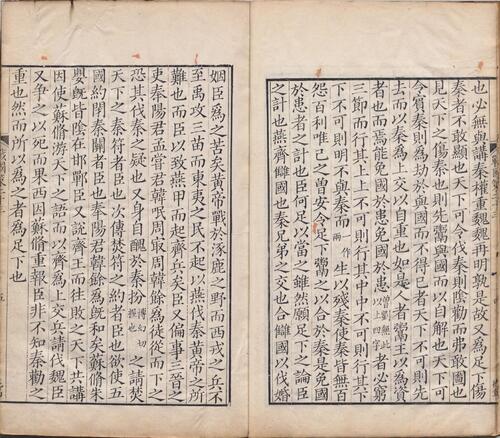 也必無與講秦權重魏魏再明孰是故又爲足下傷
秦者不敢顯也天下可令伐秦則陰勸而弗敢圖也
見天下之傷秦也則先鬻與國而以自解也天下可
令賓秦則爲劫於與國而不得已者天下不可則先
去而以秦爲上交以自重也如是人者鬻王以爲資
者也而焉能免國於患免國於患曾劉無此以上四字者必窮
三節而行其上上不可則行其中中不可則行其下
下不可則明不與秦而一作兩生以殘秦使秦皆無百
怨百利唯己之曾安令足下鬻之以合於秦是免國
於患者之計也臣何足以當之雖然願足下之論臣
之計也燕齊讎國也秦兄弟之交也合讎國以伐婚
姻臣爲之苦矣黃帝戰於涿鹿之野而西戎之兵不
至禹攻三苗而東夷之民不起以燕伐秦黃帝之所
難也而臣以致燕甲而起齊兵矣臣又偏事三晉之
吏奉陽君孟嘗君韓呡周取周韓餘爲徒從而下之
恐其伐秦之疑也又身自醜於秦扮博幻切撰也之請焚
天下之秦符者臣也次傳焚符之約者臣也欲使五
國約閉秦關者臣也奉陽君韓餘爲旣和矣蘇脩朱
嬰旣皆陰在邯鄲臣又說齊王而往敗之天下共講
因使蘇脩游天下之語而以齊爲上交兵請伐魏臣
又爭之以死而果西因蘇脩重報臣非不知秦勸之
重也然而所以爲之者爲足下也
五